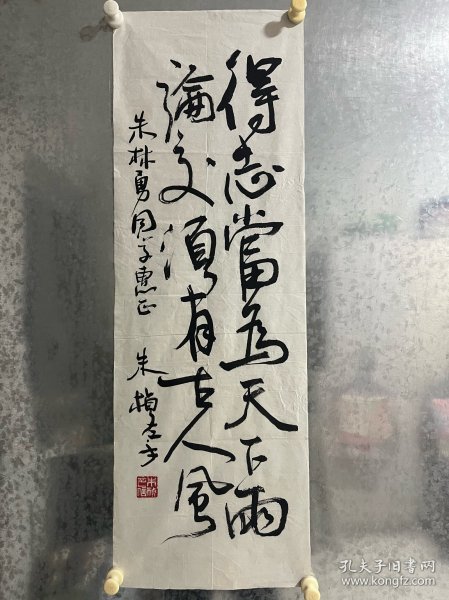 得志當為天下雨
論交須有古人風
朱林勇同学惠正
朱植左手
孔夫子旧书网
www.kongfz.com